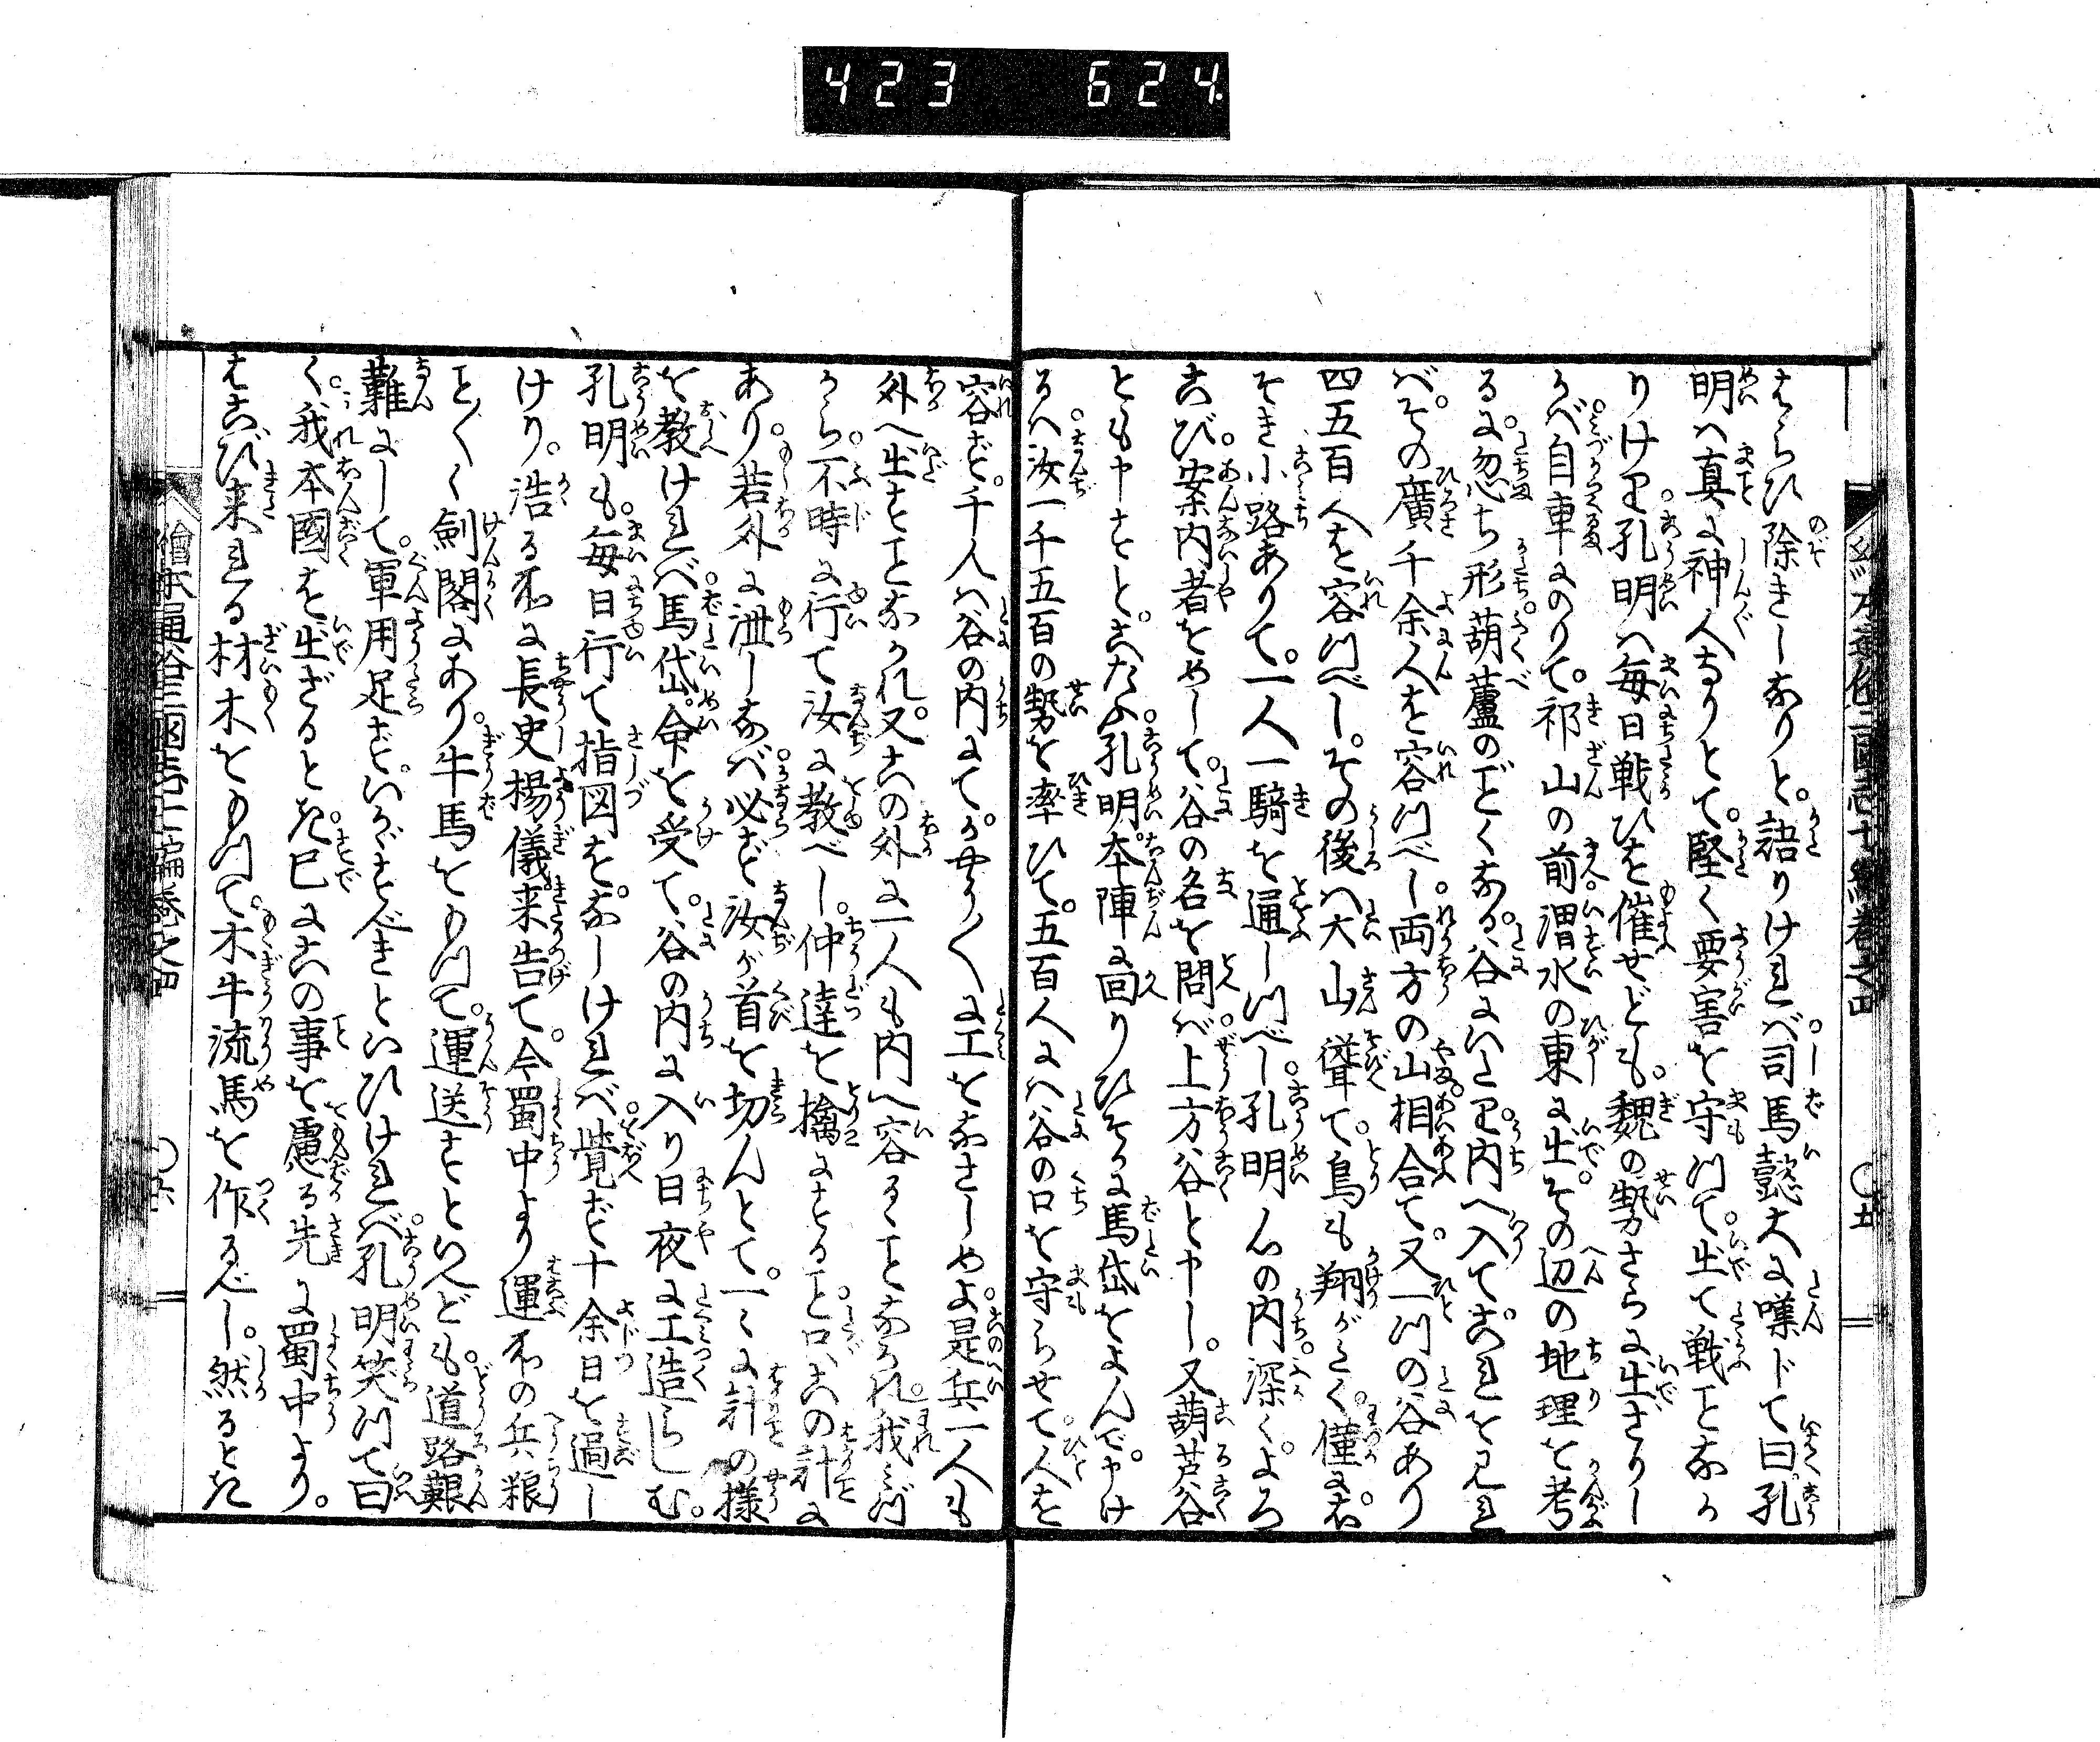 423 624
はらひ除きしなりと。語りければ司馬懿大に嘆じて曰孔
明は真に神人なりとて。堅く要害を守つて。出て戦ことなか
りけり孔明は毎日戦ひを催せども。魏の勢さらに出ざりし
かば自車にのりて。祁山の前。渭水の東に出。その辺の地理を考
るに。忽ち形葫蘆のごくなる。谷にいたり。内へ入てこれを見れ
ば。その廣千余人を容つべし。両方の山相合て。又一つの谷あり
四五百人を容つべし。その後は大山聳て。鳥も翔がたく。僅に。
そき小路ありて。一人一騎を通しつべし。孔明心の内深くよろ
こび。案内者をめして。谷の名を問ば。上方谷と申し。又葫芦谷
とも申すと。こたふ。孔明本陣に回りひそかに馬岱をよんで。申け
るは。汝一千五百の勢を率ひて。五百人には谷の口を守らせて。人を
容ず。千人は谷の内にて。かやうかやうに工をなさしめよ。是兵一人も
外へ出すことなかれ。又この外に一人も内へ容ることなかれ。我みづ
から。不時に行て汝に教べし。仲達を擒にすること。只この計に
あり。若外に泄しなば。必ず汝が首を切んとて。一々に計の様
を教ければ。馬岱。命を受て。谷の内に入り日夜に工造らしむ。
孔明も。毎日行て指図を。なしければ。覚ず十余日を過し
けり。浩る所に長史楊儀来告て。今蜀中より運所の兵粮
こと〴〵く剣閣にあり。牛馬をもつて。運送すといへども。道路艱
難にして。軍用足ず。いがすべきといひければ。孔明笑つて曰
く。我本國を出ざるとき。已にこの事を慮る先に蜀中より。
はこび来れる材木をもつて。木牛流馬を作るべし。然るとき
繪本通俗三國志七編巻之四
〇五
〇六